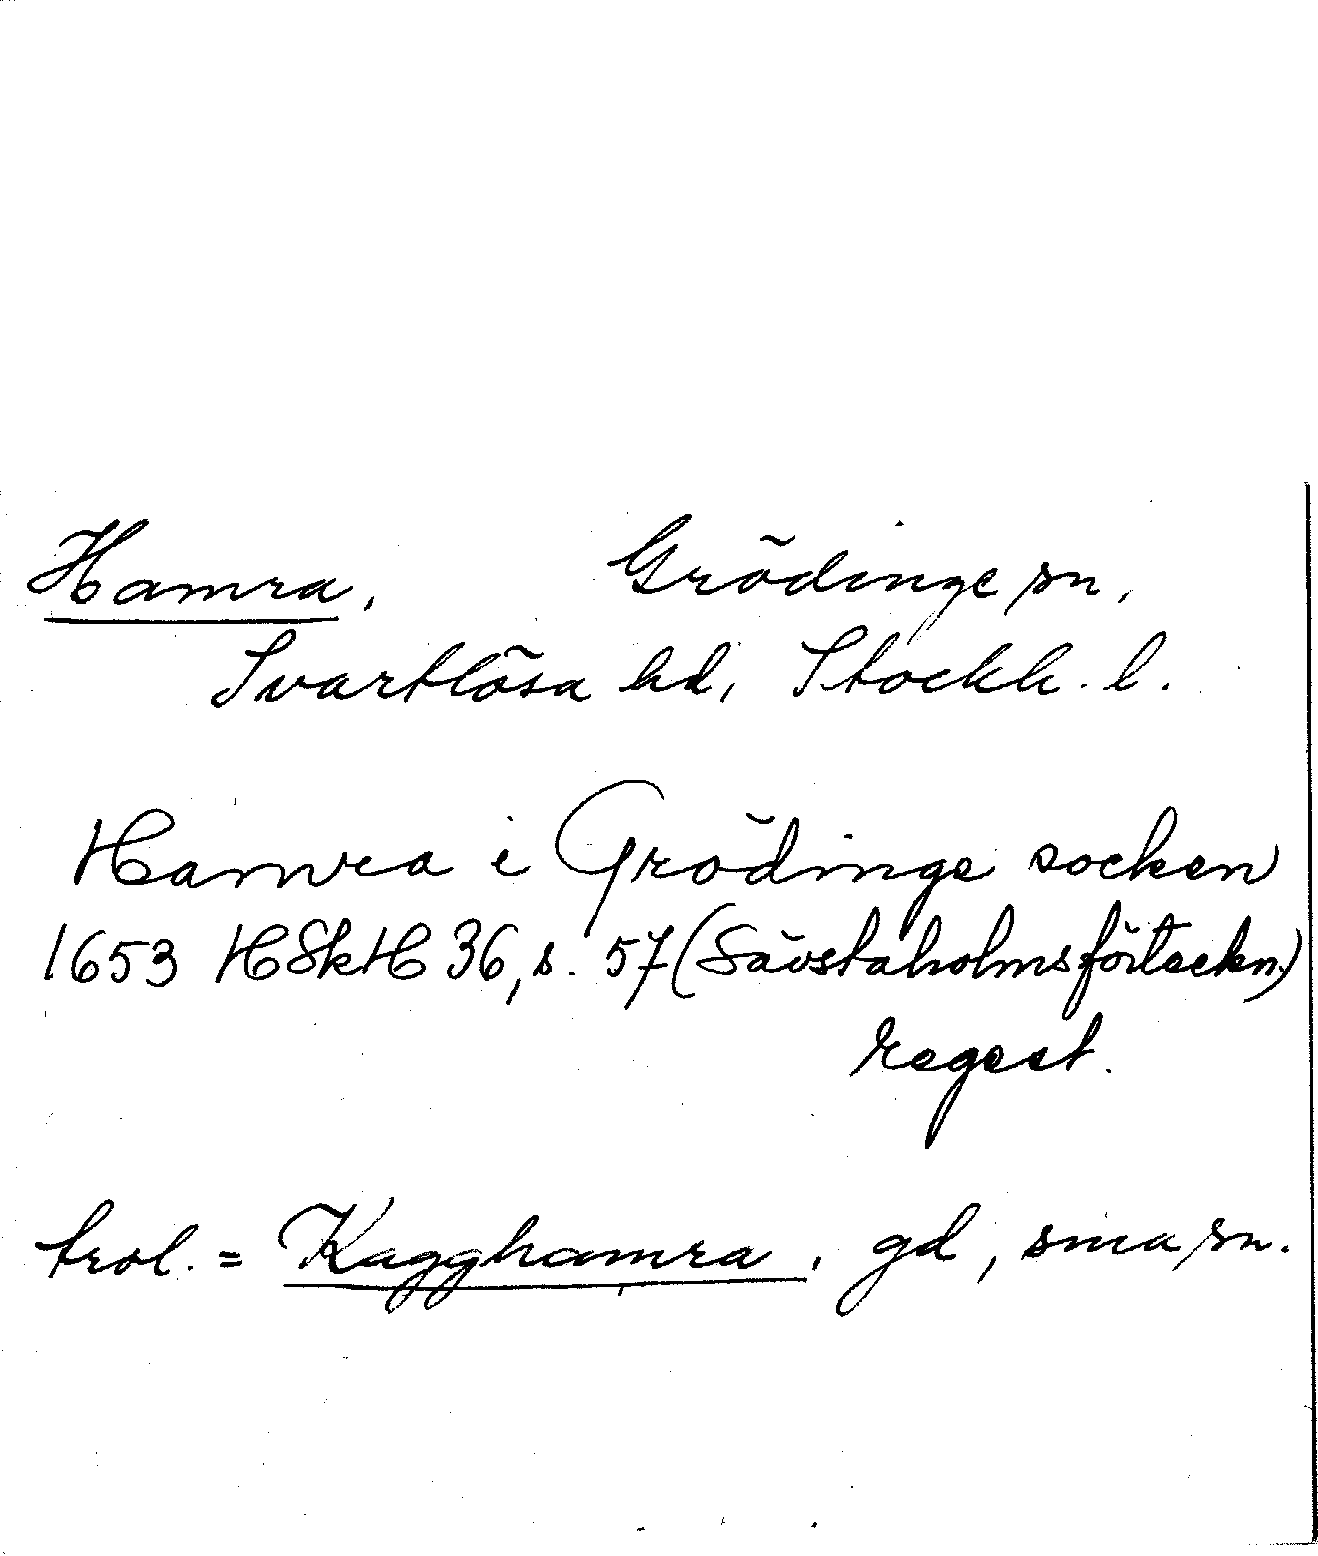 Hamra, Grödinge sn,
Svartlösa hd, Stockh. l.
Hamra i Grödinge socken
1653 HSkH 36, s. 57 (Sävstaholmsförteckn.)
regest.
trol. = Kagghamra, gd, sma sn.